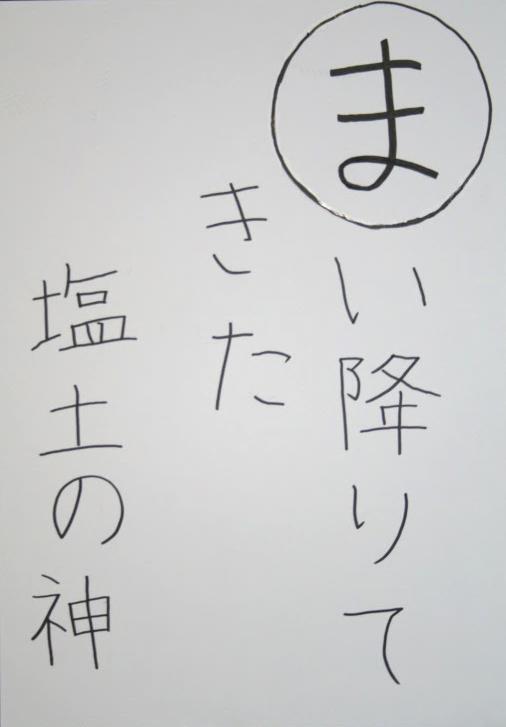 まい降りて
きた
塩土の神